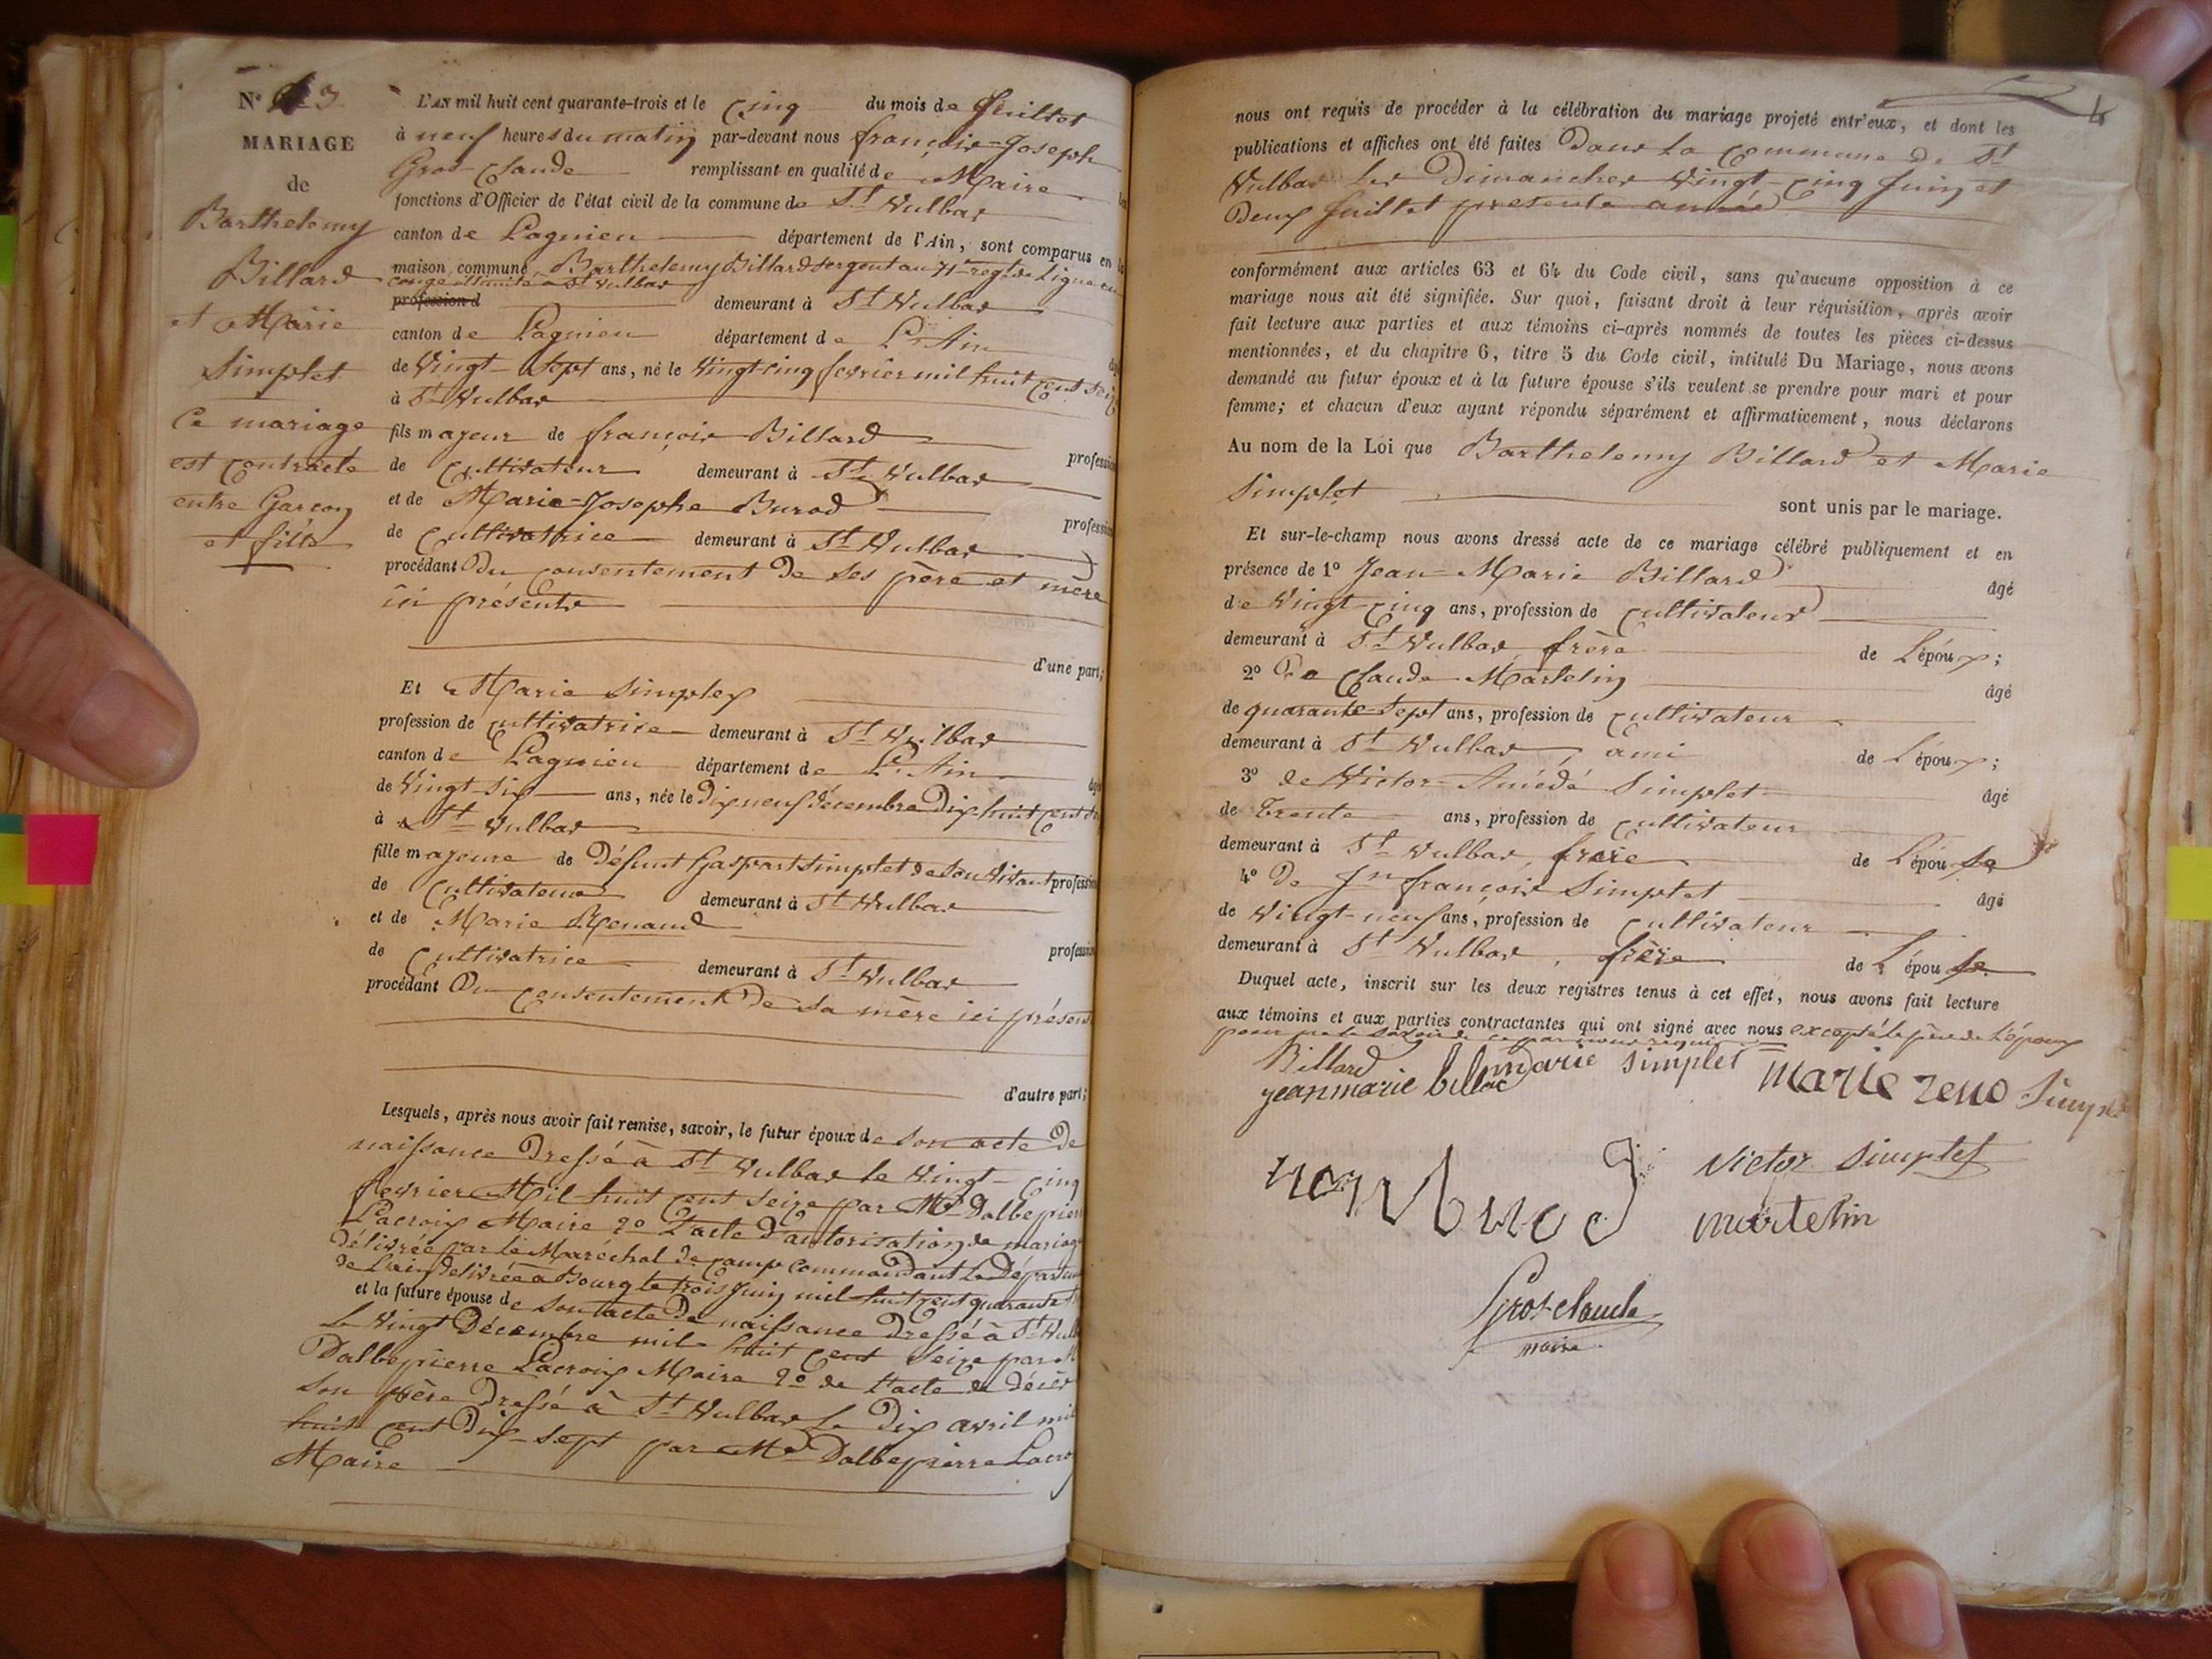 N° 3
MARIAGE
de
Barthelemy
Billard
et Marie
Simplet
Ce mariage
est contracté
entre Garçon
et fille
L'AN mil huit cent quarante-trois et le cinq du mois de Juillet
à neuf heures du matin par-devant nous françois-Joseph
Gros-Claude remplissant en qualité de Maire
fonctions d'Officier de l'état civil de la commune de St Vulbas
canton de Lagnieu département de l'Ain, sont comparus en la
maison commune, Barthelemy Billard sergent au 71e regt de Ligne en
congé illimité à St Vulbas
profession d demeurant à St Vulbas
canton de Lagnieu département de L'Ain
de Vingt-sept ans, né le Vingt cinq fevrier mil huit cent seize
à St Vulbas
fils majeur de françois Billard
profession
de Cultivateur demeurant à St Vulbas
et de Marie-Josephe Burod
profession
de Cultivatrice demeurant à St Vulbas
procédant Du consentement de ses père et mère
ici présents
d'une part;
Et Marie Simplex
profession de cultivatrice demeurant à St Vulbas
canton de Lagnieu département de L'Ain
de Vingt-six ans, née le Dix neuf décembre Dix-huit cent
à St Vulbas
fille majeure de Défunt Gaspart Simplet de son Vivant profession
de Cultivateur demeurant à St Vulbas
et de Marie Renaud
profession
de Cultivatrice demeurant à St Vulbas
procédant Du consentement De sa mère ici présente
d'autre part;
Lesquels, après nous avoir fait remise, savoir, le futur époux de son acte De
naissance Dressé à St Vulbas le Vingt-cinq
fevrier Mil huit cent seize par Mr Dalbepierre
Lacroix Maire 2o L'acte d'autorisation de mariage
délivrée par le Maréchal de camp commandant Le Département
de L'ain délivrée à Bourg le trois Juin mil huit cent quarante
et la future épouse de son acte De naissance Dressé à St Vulbas
Le Vingt Décembre mil huit cent seize par M
Dalbepierre Lacroix Maire 2o de l'acte de Décès
Son père Dressé à St Vulbas Le Dix avril mil
huit cent Dix-sept par Mr Dalbepierre Lacroix
Maire
nous ont requis de procéder à la célébration du mariage projeté entr'eux, et dont les
publications et affiches ont été faites Dans La Commune de St
Vulbas Les Dimanches Vingt-cinq Juin et
Deux Juillet presente année
conformément aux articles 63 et 64 du Code civil, sans qu'aucune opposition à ce
mariage nous ait été signifiée. Sur quoi, faisant droit à leur réquisition, après avoir
fait lecture aux parties et aux témoins ci-après nommés de toutes les pièces ci-dessus
mentionnées, et du chapitre 6, titre 5 du Code civil, intitulé Du Mariage, nous avons
demandé au futur époux et à la future épouse s'ils veulent se prendre pour mari et pour
femme; et chacun d'eux ayant répondu séparément et affirmativement, nous déclarons
Au nom de la Loi que Barthelemy Billard et Marie
Simplet sont unis par le mariage.
Et sur-le-champ nous avons dressé acte de ce mariage célébré publiquement et en
présence de 1° Jean-Marie Billard âgé
de Vingt-cinq ans, profession de cultivateur
demeurant à St Vulbas, frère de L'époux;
2° De Claude Martelin âgé
de quarante-sept ans, profession de cultivateur
demeurant à St Vulbas, ami de L'époux;
3° de Victor-Amédé Simplet âgé
de Trente ans, profession de cultivateur
demeurant à St Vulbas, frère de L'épouse
4° De Jn françois Simplet âgé
de Vingt-neuf ans, profession de cultivateur
demeurant à St Vulbas, frère de L'épouse
Duquel acte, inscrit sur les deux registres tenus à cet effet, nous avons fait lecture
aux témoins et aux parties contractantes qui ont signé avec nous excepté le père de L'époux
pour ne le savoir de ce par nous requis
Billard marie simplet marie reno Simplet
jean marie billar
victor simplet
martelin
Gros-Claude
maire